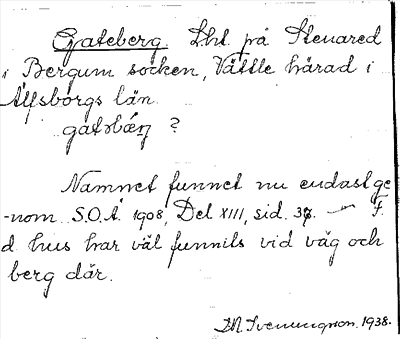 Gateberg. Lht. på Stenared
i Bergum socken, Vättle härad i
Älfsborgs län.
gatəbæ̀rj ?
Namnet funnet nu endast ge
-nom S.O.Ä 1908, Del XIII, sid. — F.
d. hus har väl funnits vid väg och
berg där.
1938.